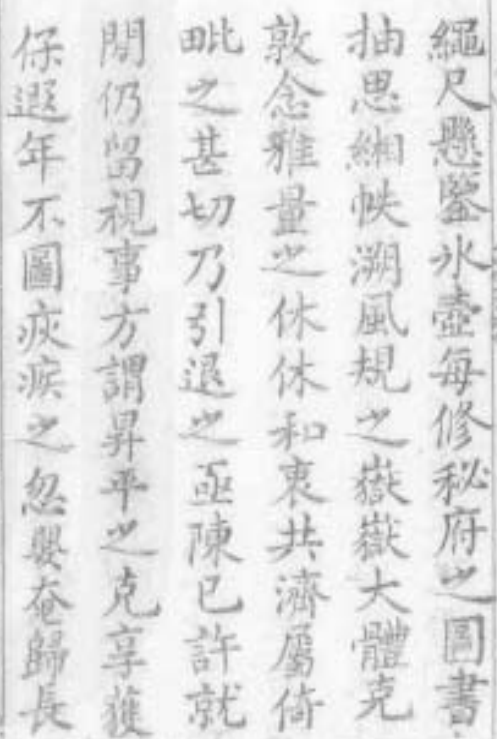 繩尺懸鑒氷壺每修秘府之圖書
抽思緗帙溯風規之嶽嶽大體克
敦念雅量之休休和衷共濟屬倚
毗之甚切乃引退之亟陳已許就
閒仍留視事方謂昇平之克享獲
保遐年不圖疢疾之忽嬰奄歸長